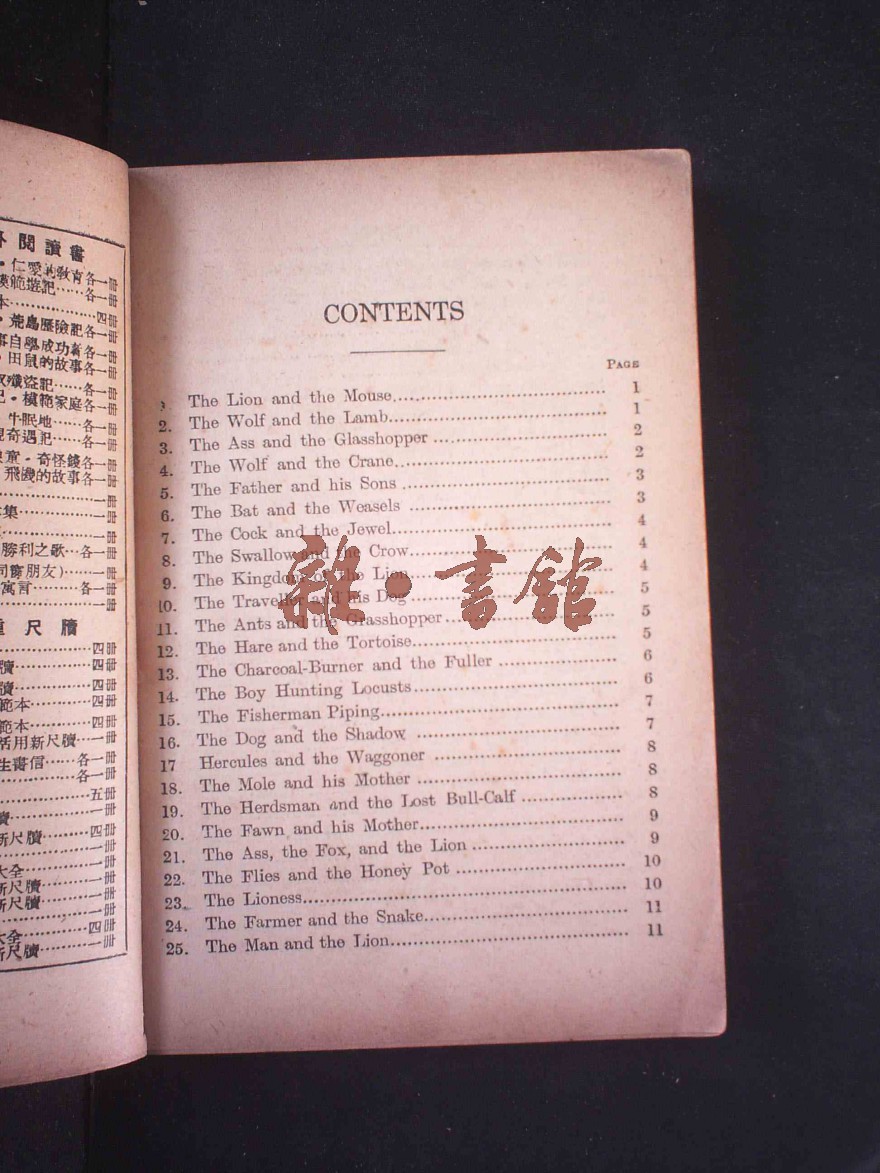 外閱讀書
·仁愛的教育各一冊
模範遊記……各一冊
本……………四冊
·荒島歷險記各一冊
事自學成功者各一冊
·田鼠的故事各一冊
殲盜記……各一冊
記·模範家庭各一冊
牛眠地……各一冊
奇遇記……各一冊
童·奇怪錢各一冊
飛機的故事各一冊
一冊
集……………一冊
一冊
勝利之歌…各一冊
司爺朋友)……一冊
寓言………各一冊
一冊
尺牘
四冊
牘……………四冊
牘……………四冊
範本…………四冊
範本…………四冊
活用新尺牘…一冊
生書信……各一冊
各一冊
五冊
牘……………一冊
新尺牘………四冊
一冊
大全…………一冊
新尺牘………一冊
新尺牘………一冊
四冊
大全…………一冊
新尺牘………一冊
CONTENTS
PAGE
The Lion and the Mouse 1
2. The Wolf and the Lamb 1
3. The Ass and the Glasshopper 2
4. The Wolf and the Crane 2
5. The Father and his Sons 3
6. The Bat and the Weasels 3
7. The Cock and the Jewel 4
8. The Swallow and the Crow 4
9. The Kingdom of the Lion 4
10. The Traveller and his Dog 5
11. The Ants and the Grasshopper 5
12. The Hare and the Tortoise 5
13. The Charcoal-Burner and the Fuller 6
14. The Boy Hunting Locusts 6
15. The Fisherman Piping 7
16. The Dog and the Shadow 7
17 Hercules and the Waggoner 8
18. The Mole and his Mother 8
19. The Herdsman and the Lost Bull-Calf 8
20. The Fawn and his Mother 9
21. The Ass, the Fox, and the Lion 9
22. The Flies and the Honey Pot 10
23. The Lioness 10
24. The Farmer and the Snake 11
25. The Man and the Lion 11
雜·書館